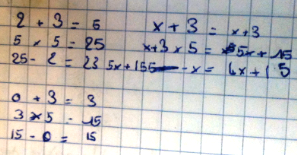 2 + 3 = 5
5 × 5 = 25
25 - 2 = 23
x + 3 = x+3
x+3 × 5 = 5x + 15
5x + 15 - x = 4x + 15
0 + 3 = 3
3 × 5 = 15
15 - 0 = 15